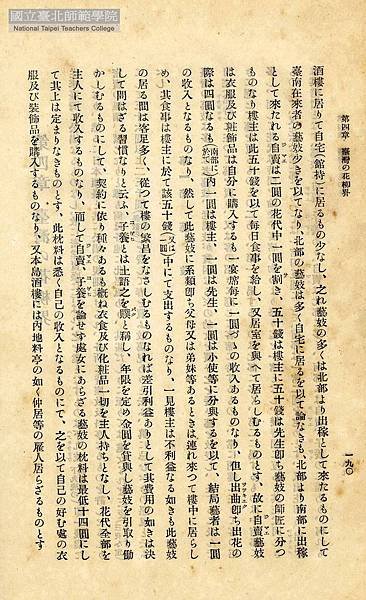 國立臺北師範學院
National Taipei Teachers College
第四章 臺灣の花柳界
一九〇
酒樓に居りて自宅(館持)に居るもの少なし、之れ藝妓の多くは北部より出稼として來たるものにして
臺南在來者の藝妓少きを以てなり、北部の藝妓は多く自宅に居るを以て論なきも、北部より南部に出稼
として來たれる自賣は二圓の花代中一圓を割き、五十錢は樓主に五十錢は先生即ち藝妓の師匠に分つ
ものなり樓主は此五十錢を以て每日食事を給し、又居室を與へて居らしむるものとす、故に自賣藝妓
は衣服及び粧飾品は自分に購入するも一宴席每に一圓づゝの收入あるものなり、但し出曲即ち出花の
際は四圓なるも(南部に於て)內一圓は樓主、一圓は先生、一圓は小使等に分與するを以て、結局藝者は一圓
の收入となるものなり、然して此藝妓に系類即ち父母又は弟妹等あるときは連れ來つて樓中に居らし
め、其食事は樓主に於て該五十錢(又は一圓)中にて支出するものなり、一見樓主は不利益なる如きも此藝妓
の居る間は客足多く、從つて樓の繁昌をなさしむるものなれば差引利益ありとして其費用の如きは決
して問はざる習慣なりと云ふ、子養とは土語之を贌と稱し、年限を定め金圓を貸與し藝妓を引取り働
かしむるものにして、契約に依り種々あるも概ね衣食及び化粧品一切を主人持ちとなし、花代全部を
主人にて收入するものなり、而して自賣、子養を論せず處女にあらざる藝妓の枕料は最低十四圓にし
て其上は定まりなきものとす、此枕料は悉く自己の收入となるものにて、之を以て自己の好む處の衣
服及び裝飾品を購入するものなり、又本島酒樓には內地料亭の如く仲居等の雇人居らざるものとす